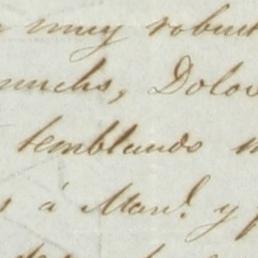 muy robust
muchs, Dolor
temblando
á Man.l y